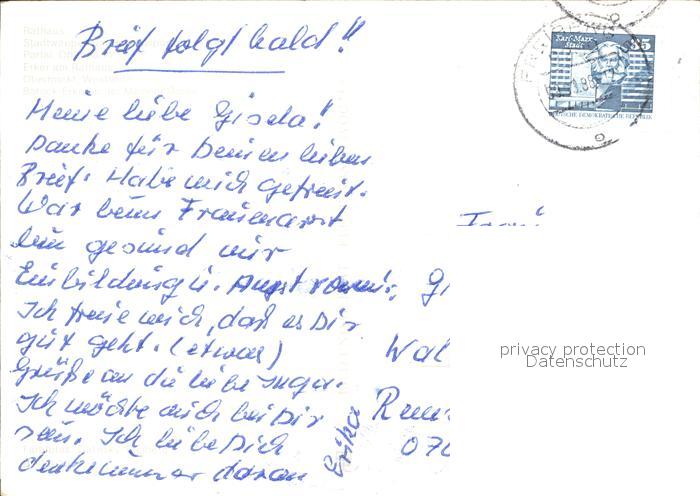 Brief folgt bald!!
Meine liebe Gisela!
Danke für Deinen lieben
Brief. Habe mich gefreut.
War beim Frauenarzt
bin gesund nur
Einbildung u. Angst
Ich freue mich, daß es Dir
gut geht. (etwas)
Grüße an die liebe Inga.
Ich möchte auch bei Dir
sein. Ich liebe Dich
denke immer daran
Erika
Gi
Wal
07
Karl-Marx-
Stadt
35
DEUTSCHE DEMOKRATISCHE REPUBLIK
FREIBERG
Rathaus
privacy protection
Datenschutz